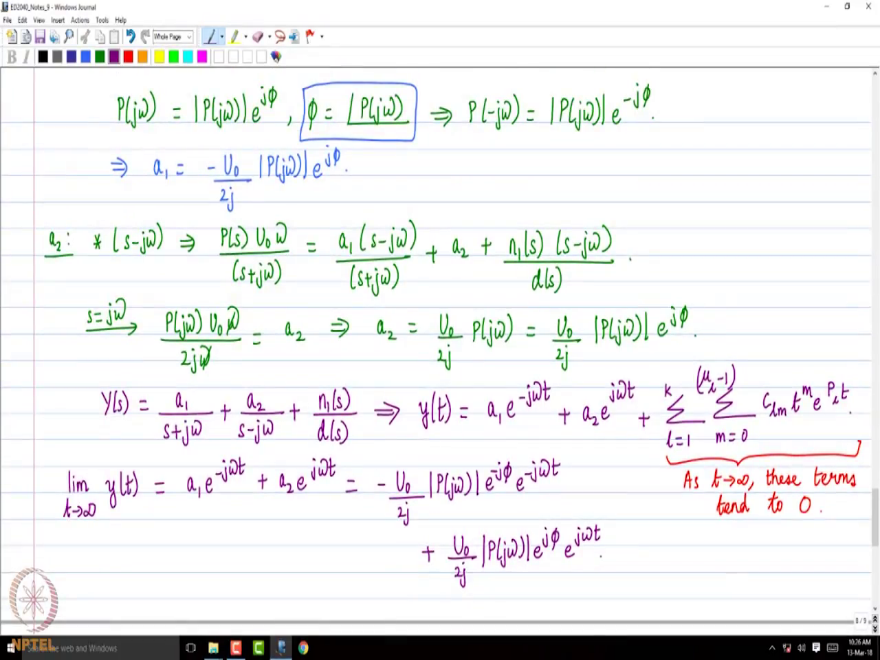 ED2040_Notes_9 - Windows Journal
File Edit View Insert Actions Tools Help
Whole Page
B I
P(jω) = |P(jω)| e^{jφ}, φ = ∠P(jω) ⇒ P(-jω) = |P(jω)| e^{-jφ}.
⇒ a₁ = -U₀/2j |P(jω)| e^{jφ}.
a₂: * (s-jω) ⇒ P(s) U₀ ω/(s+jω) = a₁(s-jω)/(s+jω) + a₂ + n₁(s) (s-jω)/d(s).
s=jω → P(jω) U₀ ω/2jω = a₂ ⇒ a₂ = U₀/2j P(jω) = U₀/2j |P(jω)| e^{jφ}.
Y(s) = a₁/(s+jω) + a₂/(s-jω) + n₁(s)/d(s) ⇒ y(t) = a₁e^{-jωt} + a₂e^{jωt} + Σ_{l=1}^{k} Σ_{m=0}^{(μ_l-1)} c_{lm} t^m e^{P_l t}.
lim_{t→∞} y(t) = a₁e^{-jωt} + a₂e^{jωt} = -U₀/2j |P(jω)| e^{jφ} e^{-jωt}
As t→∞, these terms
tend to 0.
+ U₀/2j |P(jω)| e^{jφ} e^{jωt}.
NPTEL
the web and Windows
10:26 AM
13-Mar-18